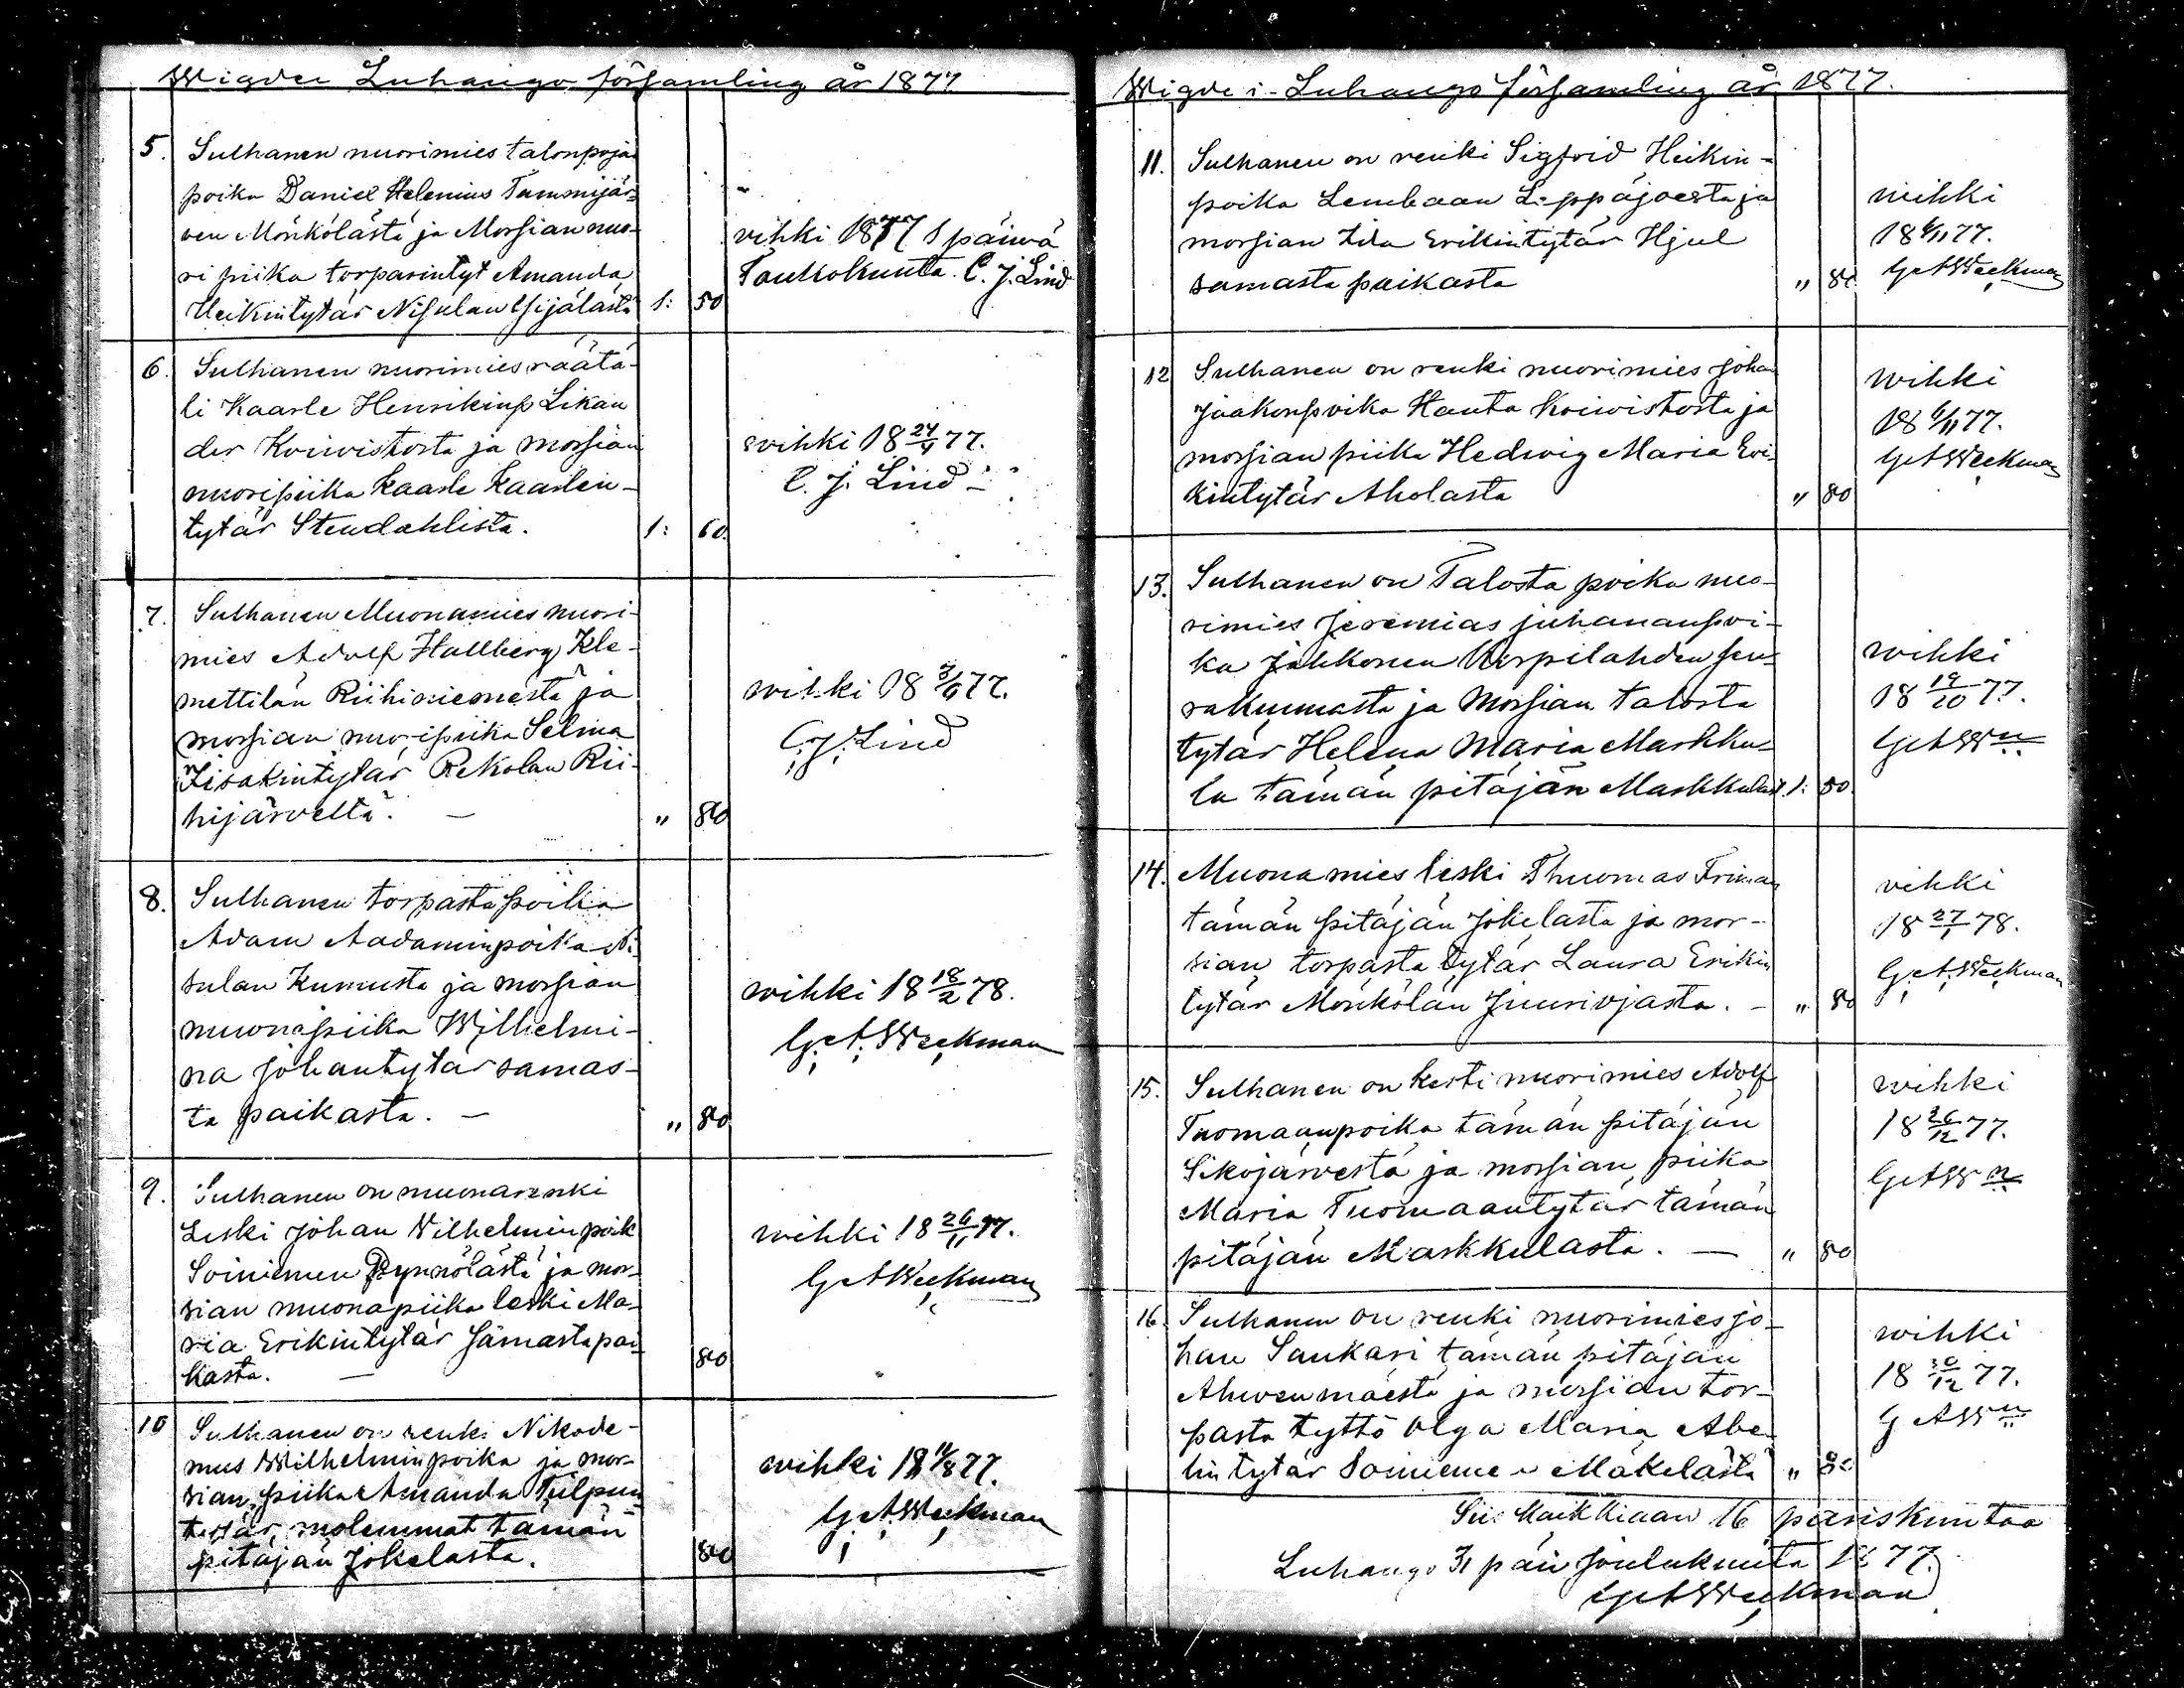 Wigde i Luhango församling år 1877
5. Sulhanen nuorimies talonpojan
poika Daniel Helenius Tammijär-
ven Mönkölästä ja Morsian nuo-
ri piika torparintyt Amanda
Heikintytär Nisulan 1: 50
vihki 1877 1 päiwä
Toukokuuta. C. J. Lind
6. Sulhanen nuorimies räätä-
li Kaarle Henrikinp Likan
der Koiwistosta ja morsian
nuoripiika Kaarle Kaarlen-
tytär Stendahlista. 1: 60.
wihki 18 24/4 77.
C. J. Lind
7. Sulhanen Muonamies nuori-
mies Adolf Hallberg Kle-
mettilän Riihiniemestä ja
morsian nuoripiika Selma
Iisakintytär Rekolan Rii-
hijärveltä. — " 80
wihki 18 3/6 77.
C. J. Lind
8. Sulhanen torpasta poika
Adam Aadaminpoika Ni-
sulan Kumusta ja morsian
nuoripiika Wilhelmi-
na Johantytär samas-
ta paikasta. — " 80
wihki 18 18/2 78.
G. A. Weekman
9. Sulhanen on muonarenki
Leski Johan Vilhelmin poik
Soiniemen Pynnölästä ja mor-
sian muonapiika leski Ma-
ria Erikintytär Sämastapai-
kasta. — 80
wihki 18 26/11 77.
G A Weekman
10 Sulhanen on renki Nikode-
mus Wilhelminpoika ja mor-
sian piika Amanda
tytär, molemmat tämän
pitäjän Jokelasta. 80
wihki 18 77.
G. A. Weekman
Wigde i Luhango församling år 1877.
11. Sulhanen on renki Sigfrid Heikin-
poika Lembaan Leppäjoesta ja
morsian Ida Erikintytär Hjul
samasta paikasta " 80
wihki
18 6/11 77.
G A Weekman
12 Sulhanen on renki nuorimies Johan
Jaakonpoika Hauta Koiwistosta ja
morsian piika Hedwig Maria Eri-
kintytär Aholasta " 80
wihki
18 6/11 77.
G A Weekman
13. Sulhanen on Talosta poika nuo-
rimies Jeremias juhananpoi-
ka Jokkonen Korpilahden seu-
rakunnasta ja Morsian talosta
tytär Helena Maria Markku-
la tämän pitäjän Markkulast. 1: 50.
wihki
18 19/10 77.
G A W n
14. Muonamies leski Thuomas Friman
tämän pitäjän Jokelasta ja mor-
sian torpasta tytär Laura Erikin
tytär Mönkölän Juuriojasta. — " 80
vihki
18 27/1 78.
G. A. Weekman
15. Sulhanen on kesti nuorimies Adolf
Tuomaanpoika tämän pitäjän
Sikojärvestä ja morsian piika
Maria Tuomaantytär tämän
pitäjän Markkulasta. — " 80
wihki
18 26/12 77.
G A W n
16. Sulhanen on renki nuorimies Jo-
han Saukari tämän pitäjän
Ahvenmäestä ja morsian tor-
pasta tyttö Olga Maria Abe-
lin tytär Soiniemen Mäkelästä " 80
wihki
18 30/12 77.
G A W n
16 pariskuntaa
Luhango 31 päiv Joulukuuta 1877.
G A Weekman